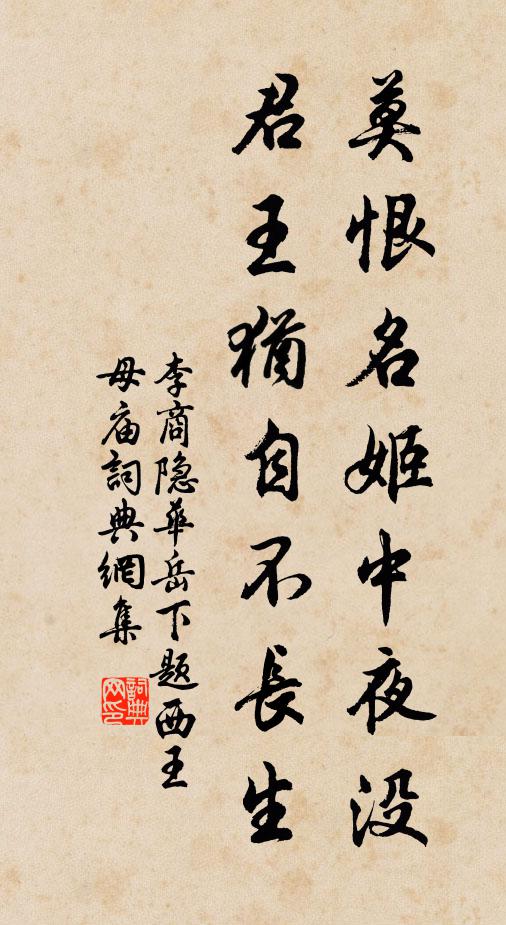 莫恨名姬中夜没
君王猶自不長生
李商隐華岳下題西王
母庙詞典網集
詞典網印